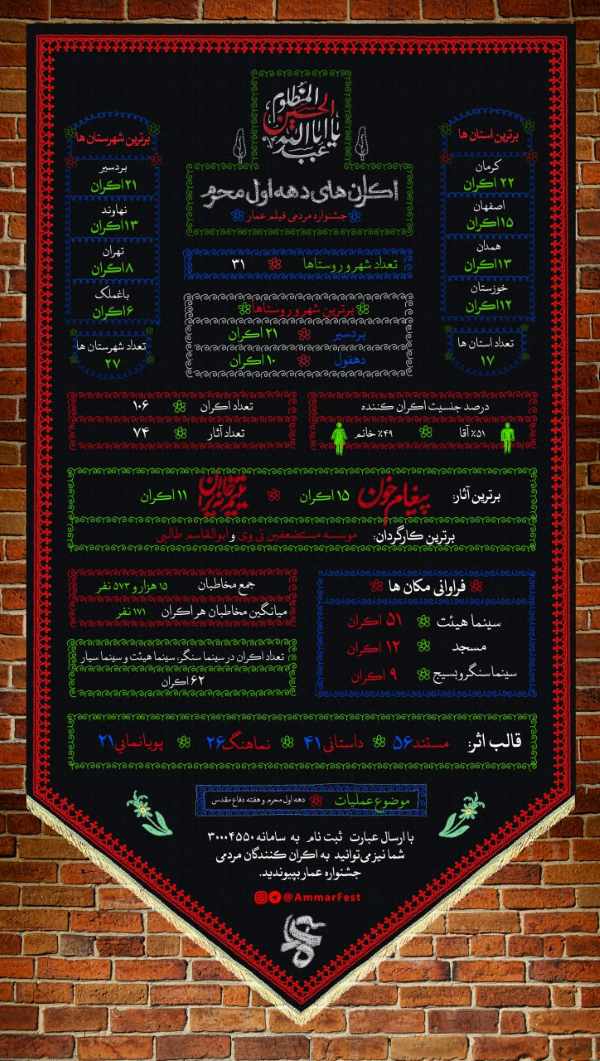 یا اباعبدالله
الحسین
المظلوم
اکران های دهه اول محرم
جشنواره مردمی فیلم عمار
برترین استان ها
کرمان
۲۲ اکران
اصفهان
۱۵ اکران
همدان
۱۳ اکران
خوزستان
۱۲ اکران
تعداد استان ها
۱۷
برترین شهرستان ها
بردسیر
۲۱ اکران
نهاوند
۱۳ اکران
تهران
۸ اکران
باغملک
۶ اکران
تعداد شهرستان ها
۲۷
تعداد شهر و روستاها ۳۱
برترین شهر و روستاها
بردسیر ۲۱ اکران
دهفول ۱۰ اکران
درصد جنسیت اکران کننده
۵۱٪ آقا ۴۹٪ خانم
تعداد اکران ۱۰۶
تعداد آثار ۷۴
برترین آثار: پیغام خون ۱۵ اکران ۱۱ اکران
برترین کارگردان: موسسه مستضعفین تی وی و ابوالقاسم طالبی
فراوانی مکان ها
سینما هیئت ۵۱ اکران
مسجد ۱۲ اکران
سینما سنگر و بسیج ۹ اکران
جمع مخاطبان ۱۵ هزار و ۵۷۳ نفر
میانگین مخاطبان هر اکران ۱۷۱ نفر
تعداد اکران در سینما سنگر، سینما هیئت و سینما سیار
۶۲ اکران
قالب اثر: مستند ۵۶ داستانی ۴۱ نماهنگ ۲۶ پویانمایی ۲۱
موضوع عملیات دهه اول محرم و هفته دفاع مقدس
با ارسال عبارت ثبت نام به سامانه ۳۰۰۰۴۵۵۰
شما نیز می‌توانید به اکران کنندگان مردمی
جشنواره عمار بپیوندید.
@AmmarFest